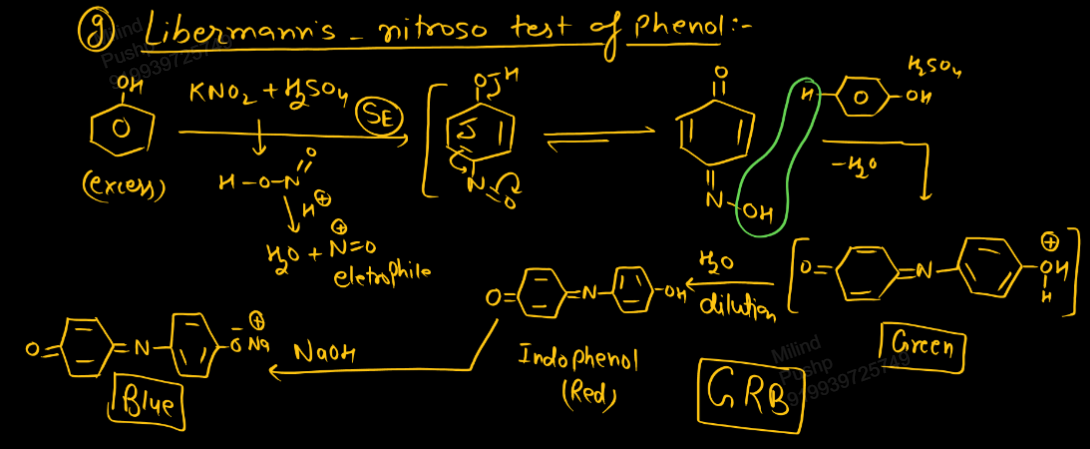 (g) Libermann's - nitroso test of Phenol:-
Milind
Pushp
919939725749
OH
(excess)
KNO2 + H2SO4
SE
H-O-N=O
H⊕
H2O + N⊕=O
eletrophile
OH
N=O
O
N-OH
H2SO4
H-O-OH
-H2O
O= =N- -O⊕H
H
Green
H2O
dilution
O= =N- -OH
Indophenol
(Red)
NaOH
O= =N- -O⁻ Na⊕
Blue
GRB
Milind
Pushp
919939725749